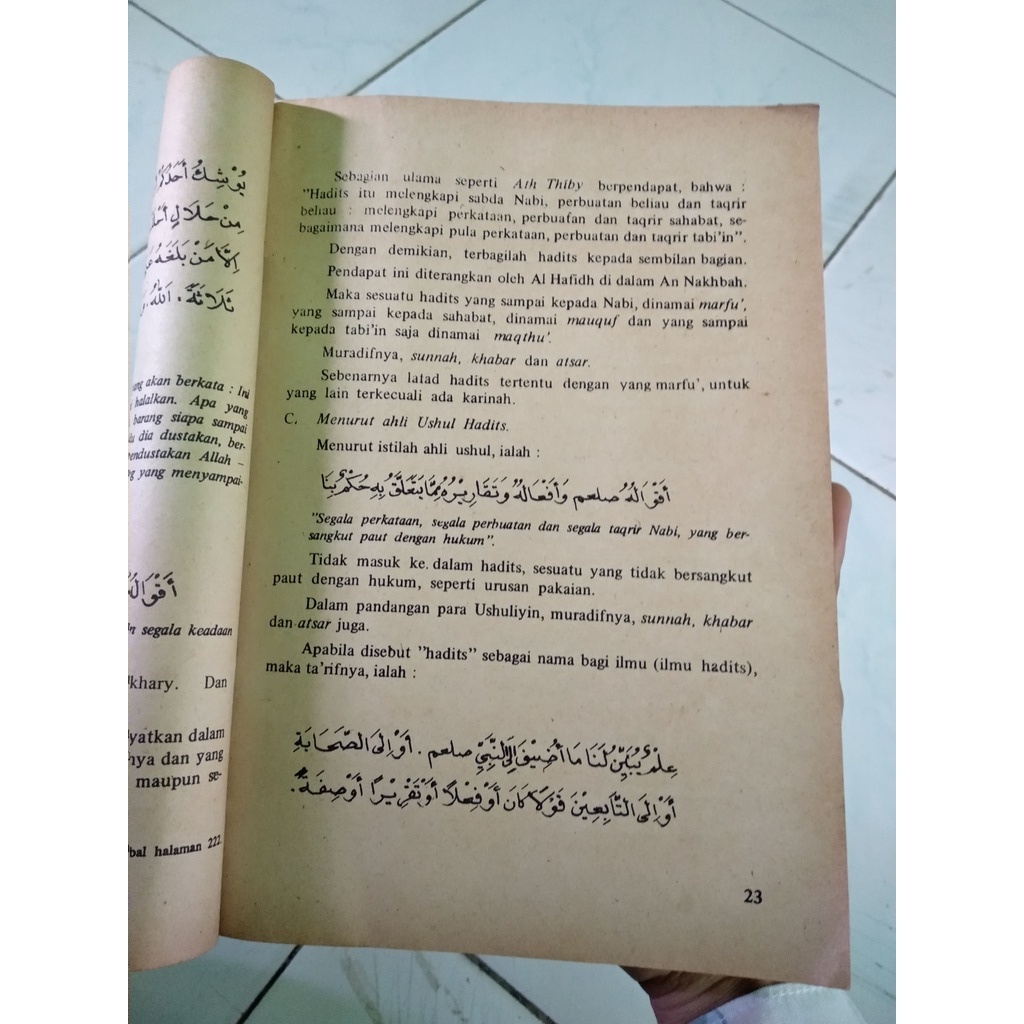 يُوْشِكُ
مِنْ حَلَالٍ
اِلَّا مَنْ بَلَغَهُ
ثَلَاثَةً. اَللهُ.
akan berkata : Ini
halalkan. Apa yang
barang siapa sampai
dia dustakan, ber-
Allah –
yang menyampai-
segala keadaan
Dan
dalam
dan yang
maupun se-
halaman 222.
Sebagian ulama seperti Ath Thiby berpendapat, bahwa :
"Hadits itu melengkapi sabda Nabi, perbuatan beliau dan taqrir
beliau : melengkapi perkataan, perbuatan dan taqrir sahabat, se-
bagaimana melengkapi pula perkataan, perbuatan dan taqrir tabi'in".
Dengan demikian, terbagilah hadits kepada sembilan bagian.
Pendapat ini diterangkan oleh Al Hafidh di dalam An Nakhbah.
Maka sesuatu hadits yang sampai kepada Nabi, dinamai marfu',
yang sampai kepada sahabat, dinamai mauquf dan yang sampai
kepada tabi'in saja dinamai maqthu'.
Muradifnya, sunnah, khabar dan atsar.
Sebenarnya latad hadits tertentu dengan yang marfu', untuk
yang lain terkecuali ada karinah.
C. Menurut ahli Ushul Hadits.
Menurut istilah ahli ushul, ialah :
أَقْوَالُهُ صلعم وَأَفْعَالُهُ وَتَقَارِيْرُهُ مِمَّا يَتَعَلَّقُ بِهِ حُكْمٌ بِنَا
"Segala perkataan, segala perbuatan dan segala taqrir Nabi, yang ber-
sangkut paut dengan hukum".
Tidak masuk ke dalam hadits, sesuatu yang tidak bersangkut
paut dengan hukum, seperti urusan pakaian.
Dalam pandangan para Ushuliyin, muradifnya, sunnah, khabar
dan atsar juga.
Apabila disebut "hadits" sebagai nama bagi ilmu (ilmu hadits),
maka ta'rifnya, ialah :
عِلْمٌ يُبَيِّنُ لَنَا مَا أُضِيْفَ إِلَى النَّبِيِّ صلعم. أَوْ إِلَى الصَّحَابَةِ
أَوْ إِلَى التَّابِعِيْنَ قَوْلًا كَانَ أَوْ فِعْلًا أَوْ تَقْرِيْرًا أَوْ صِفَةً.
23